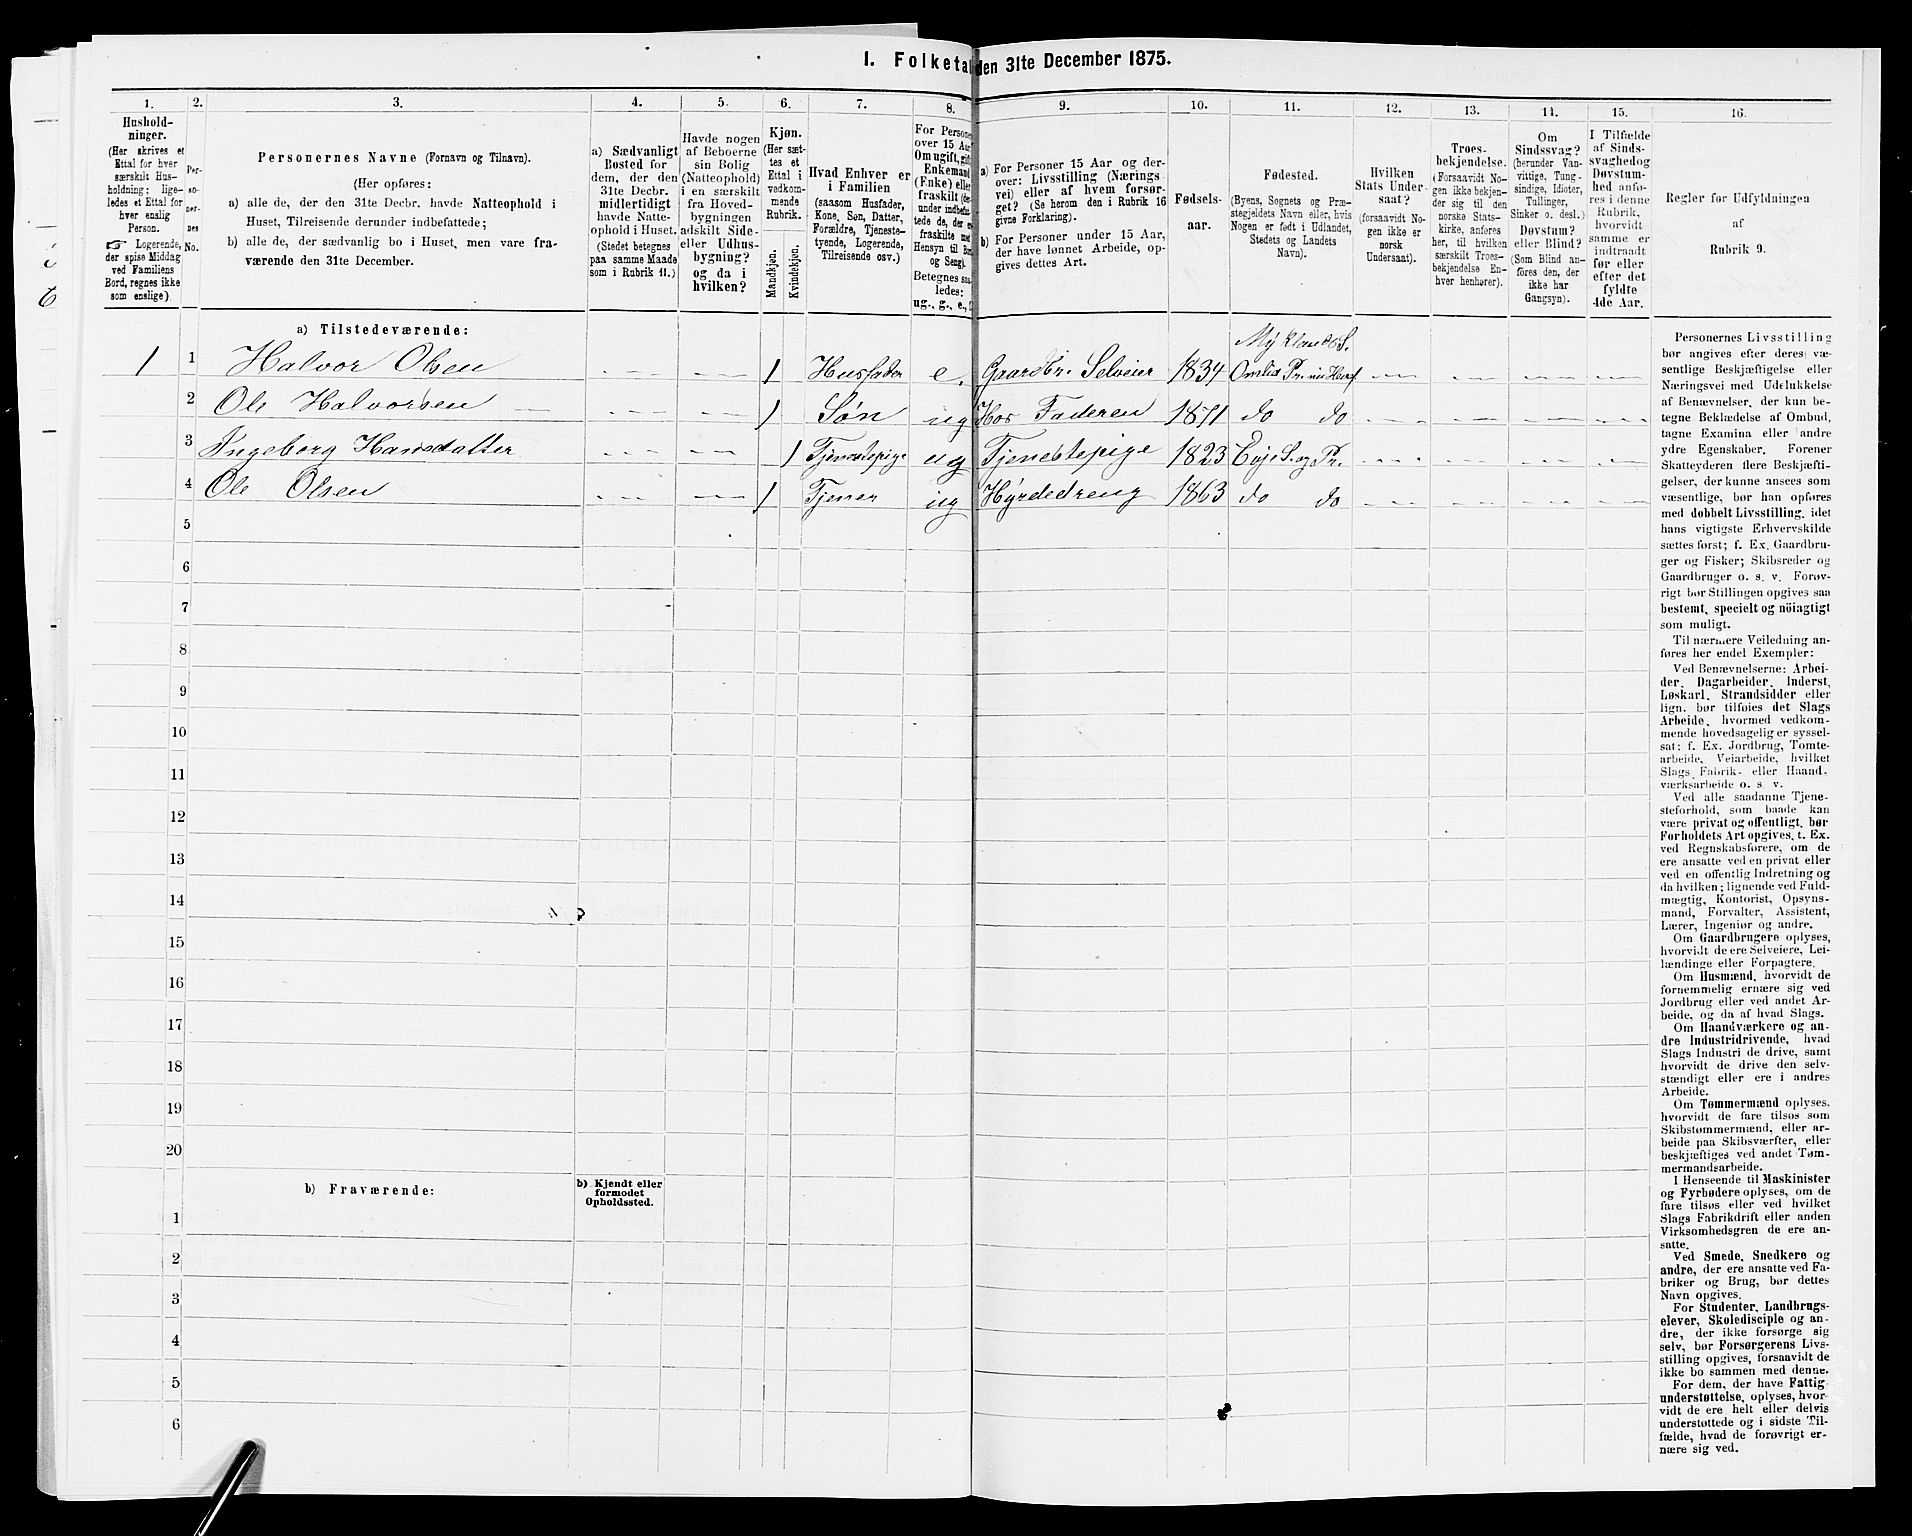 I. Folketal den 31te December 1875.
1. 2. 3. 4. 5. 6. 7. 8. 9. 10. 11. 12. 13. 14. 15. 16.
Hushold-
ninger.
(Her skrives et
Ettal for hver
særskilt Hus-
holdning; lige-
ledes et Ettal for
hver enslig
Person.
☞ Logerende,
der spise Middag
ved Familiens
Bord, regnes ikke
som enslige).
Per-
so-
ner-
nes
No.
Personernes Navne (Fornavn og Tilnavn).
(Her opføres:
a) alle de, der den 31te Decbr. havde Natteophold i
Huset, Tilreisende derunder indbefattede;
b) alle de, der sædvanlig bo i Huset, men vare fra-
værende den 31te December.
a) Sædvanligt
Bosted for
dem, der den
31te Decbr.
midlertidigt
havde Natte-
ophold i Huset.
(Stedet betegnes
paa samme Maade
som i Rubrik 11.)
Havde nogen
af Beboerne
sin Bolig
(Natteophold)
i en særskilt
fra Hoved-
bygningen
adskilt Side-
eller Udhus-
bygning?
og da i
hvilken?
Kjøn.
(Her sæt-
tes et
Ettal i
vedkom-
mende
Rubrik.
Mandkjøn.
Kvindekjøn.
Hvad Enhver er
i Familien
(saasom Husfader,
Kone, Søn, Datter,
Forældre, Tjeneste-
tyende, Logerende,
Tilreisende osv.)
For Personer
over 15 Aar:
Om ugift, gift,
Enkemand
(Enke) eller
fraskilt (der-
under indbefat-
tede de, der ere
fraskilte med
Hensyn til Bord
og Seng).
Betegnes saa-
ledes:
ug., g., e.,
a) For Personer 15 Aar og der-
over: Livsstilling (Nærings-
vei) eller af hvem forsør-
get? (Se herom den i Rubrik 16
givne Forklaring).
b) For Personer under 15 Aar,
der have lønnet Arbeide, op-
gives dettes Art.
Fødsels-
aar.
Fødested.
(Byens, Sognets og Præ-
stegjeldets Navn eller, hvis
Nogen er født i Udlandet,
Stedets og Landets
Navn).
Hvilken
Stats Under-
saat?
(forsaavidt No-
gen ikke er
norsk
Undersaat).
Troes-
bekjendelse.
(Forsaavidt No-
gen ikke bekjen-
der sig til den
norske Stats-
kirke, anføres
her, til hvilken
særskilt Troes-
bekjendelse En-
hver henhører).
Om
Sindssvag?
(herunder Van-
vittige, Tung-
sindige, Idioter,
Tullinger,
Sinker o. desl.)
Døvstum?
eller Blind?
(Som Blind an-
føres den, der
ikke har
Gangsyn).
I Tilfælde
af Sinds-
svaghed og
Døvstum-
hed anfø-
res i denne
Rubrik,
hvorvidt
samme er
indtraadt
før eller
efter det
fyldte
4de Aar.
Regler for Udfyldningen
af
Rubrik 9.
a) Tilstedeværende:
Myklands S.
1 1 Halvor Olsen 1 Husfader e. Gaardbr. Selveier 1834 Omlid Pr.
2 Ole Halvorsen 1 Søn ug Hos Faderen 1871 do do
3 Ingeborg Hansdatter 1 Tjenestepige ug Tjenestepige 1823 Evje S. og Pr.
4 Ole Olsen 1 Tjener ug Hyrdedreng 1863 do do
5
6
7
8
9
10
11
12
13
14
15
16
17
18
19
20
b) Fraværende:
b) Kjendt eller
formodet
Opholdssted.
1
2
3
4
5
6
Personernes Livsstilling
bør angives efter deres væ-
sentlige Beskjæftigelse eller
Næringsvei med Udelukkelse
af Benævnelser, der kun be-
tegne Beklædelse af Ombud,
tagne Examina eller andre
ydre Egenskaber. Forener
Skatteyderen flere Beskjæfti-
gelser, der kunne ansees som
væsentlige, bør han opføres
med dobbelt Livsstilling, idet
hans vigtigste Erhvervskilde
sættes først; f. Ex. Gaardbru-
ger og Fisker; Skibsreder og
Gaardbruger o. s. v. Forøv-
rigt bør Stillingen opgives saa
bestemt, specielt og nöiagtigt
som muligt.
Til nærmere Veiledning an-
føres her endel Exempler:
Ved Benævnelserne: Arbei-
der, Dagarbeider, Inderst,
Løskarl, Strandsidder eller
lign. bør tilføies det Slags
Arbeide, hvormed vedkom-
mende hovedsagelig er syssel-
sat; f. Ex. Jordbrug, Tomte-
arbeide, Veiarbeide, hvilket
Slags Fabrik- eller Haand-
værksarbeide o. s. v.
Ved alle saadanne Tjene-
steforhold, som baade kan
være privat og offentligt, bør
Forholdets Art opgives, t. Ex.
ved Regnskabsførere, om de
ere ansatte ved en privat eller
ved en offentlig Indretning og
da hvilken; lignende ved Fuld-
mægtig, Kontorist, Opsyns-
mand, Forvalter, Assistent,
Lærer, Ingeniør og andre.
Om Gaardbrugere oplyses,
hvorvidt de ere Selveiere, Lei-
lændinge eller Forpagtere.
Om Husmænd, hvorvidt de
fornemmelig ernære sig ved
Jordbrug eller ved andet Ar-
beide, og da af hvad Slags.
Om Haandværkere og an-
dre Industridrivende, hvad
Slags Industri de drive, samt
hvorvidt de drive den selv-
stændigt eller ere i andres
Arbeide.
Om Tømmermænd oplyses,
hvorvidt de fare tilsøs som
Skibstømmermænd, eller ar-
beide paa Skibsværfter, eller
beskjæftiges ved andet Tøm-
mermandsarbeide.
I Henseende til Maskinister
og Fyrbødere oplyses, om de
fare tilsøs eller ved hvilket
Slags Fabrikdrift eller anden
Virksomhedsgren de ere an-
satte.
Ved Smede, Snedkere og
andre, der ere ansatte ved Fa-
briker og Brug, bør dettes
Navn opgives.
For Studenter, Landbrugs-
elever, Skoledisciple og an-
dre, der ikke forsørge sig
selv, bør Forsørgerens Livs-
stilling opgives, forsaavidt de
ikke bo sammen med denne.
For dem, der have Fattig-
understøttelse, oplyses, hvor-
vidt de ere helt eller delvis
understøttede og i sidste Til-
fælde, hvad de forøvrigt er-
nære sig ved.